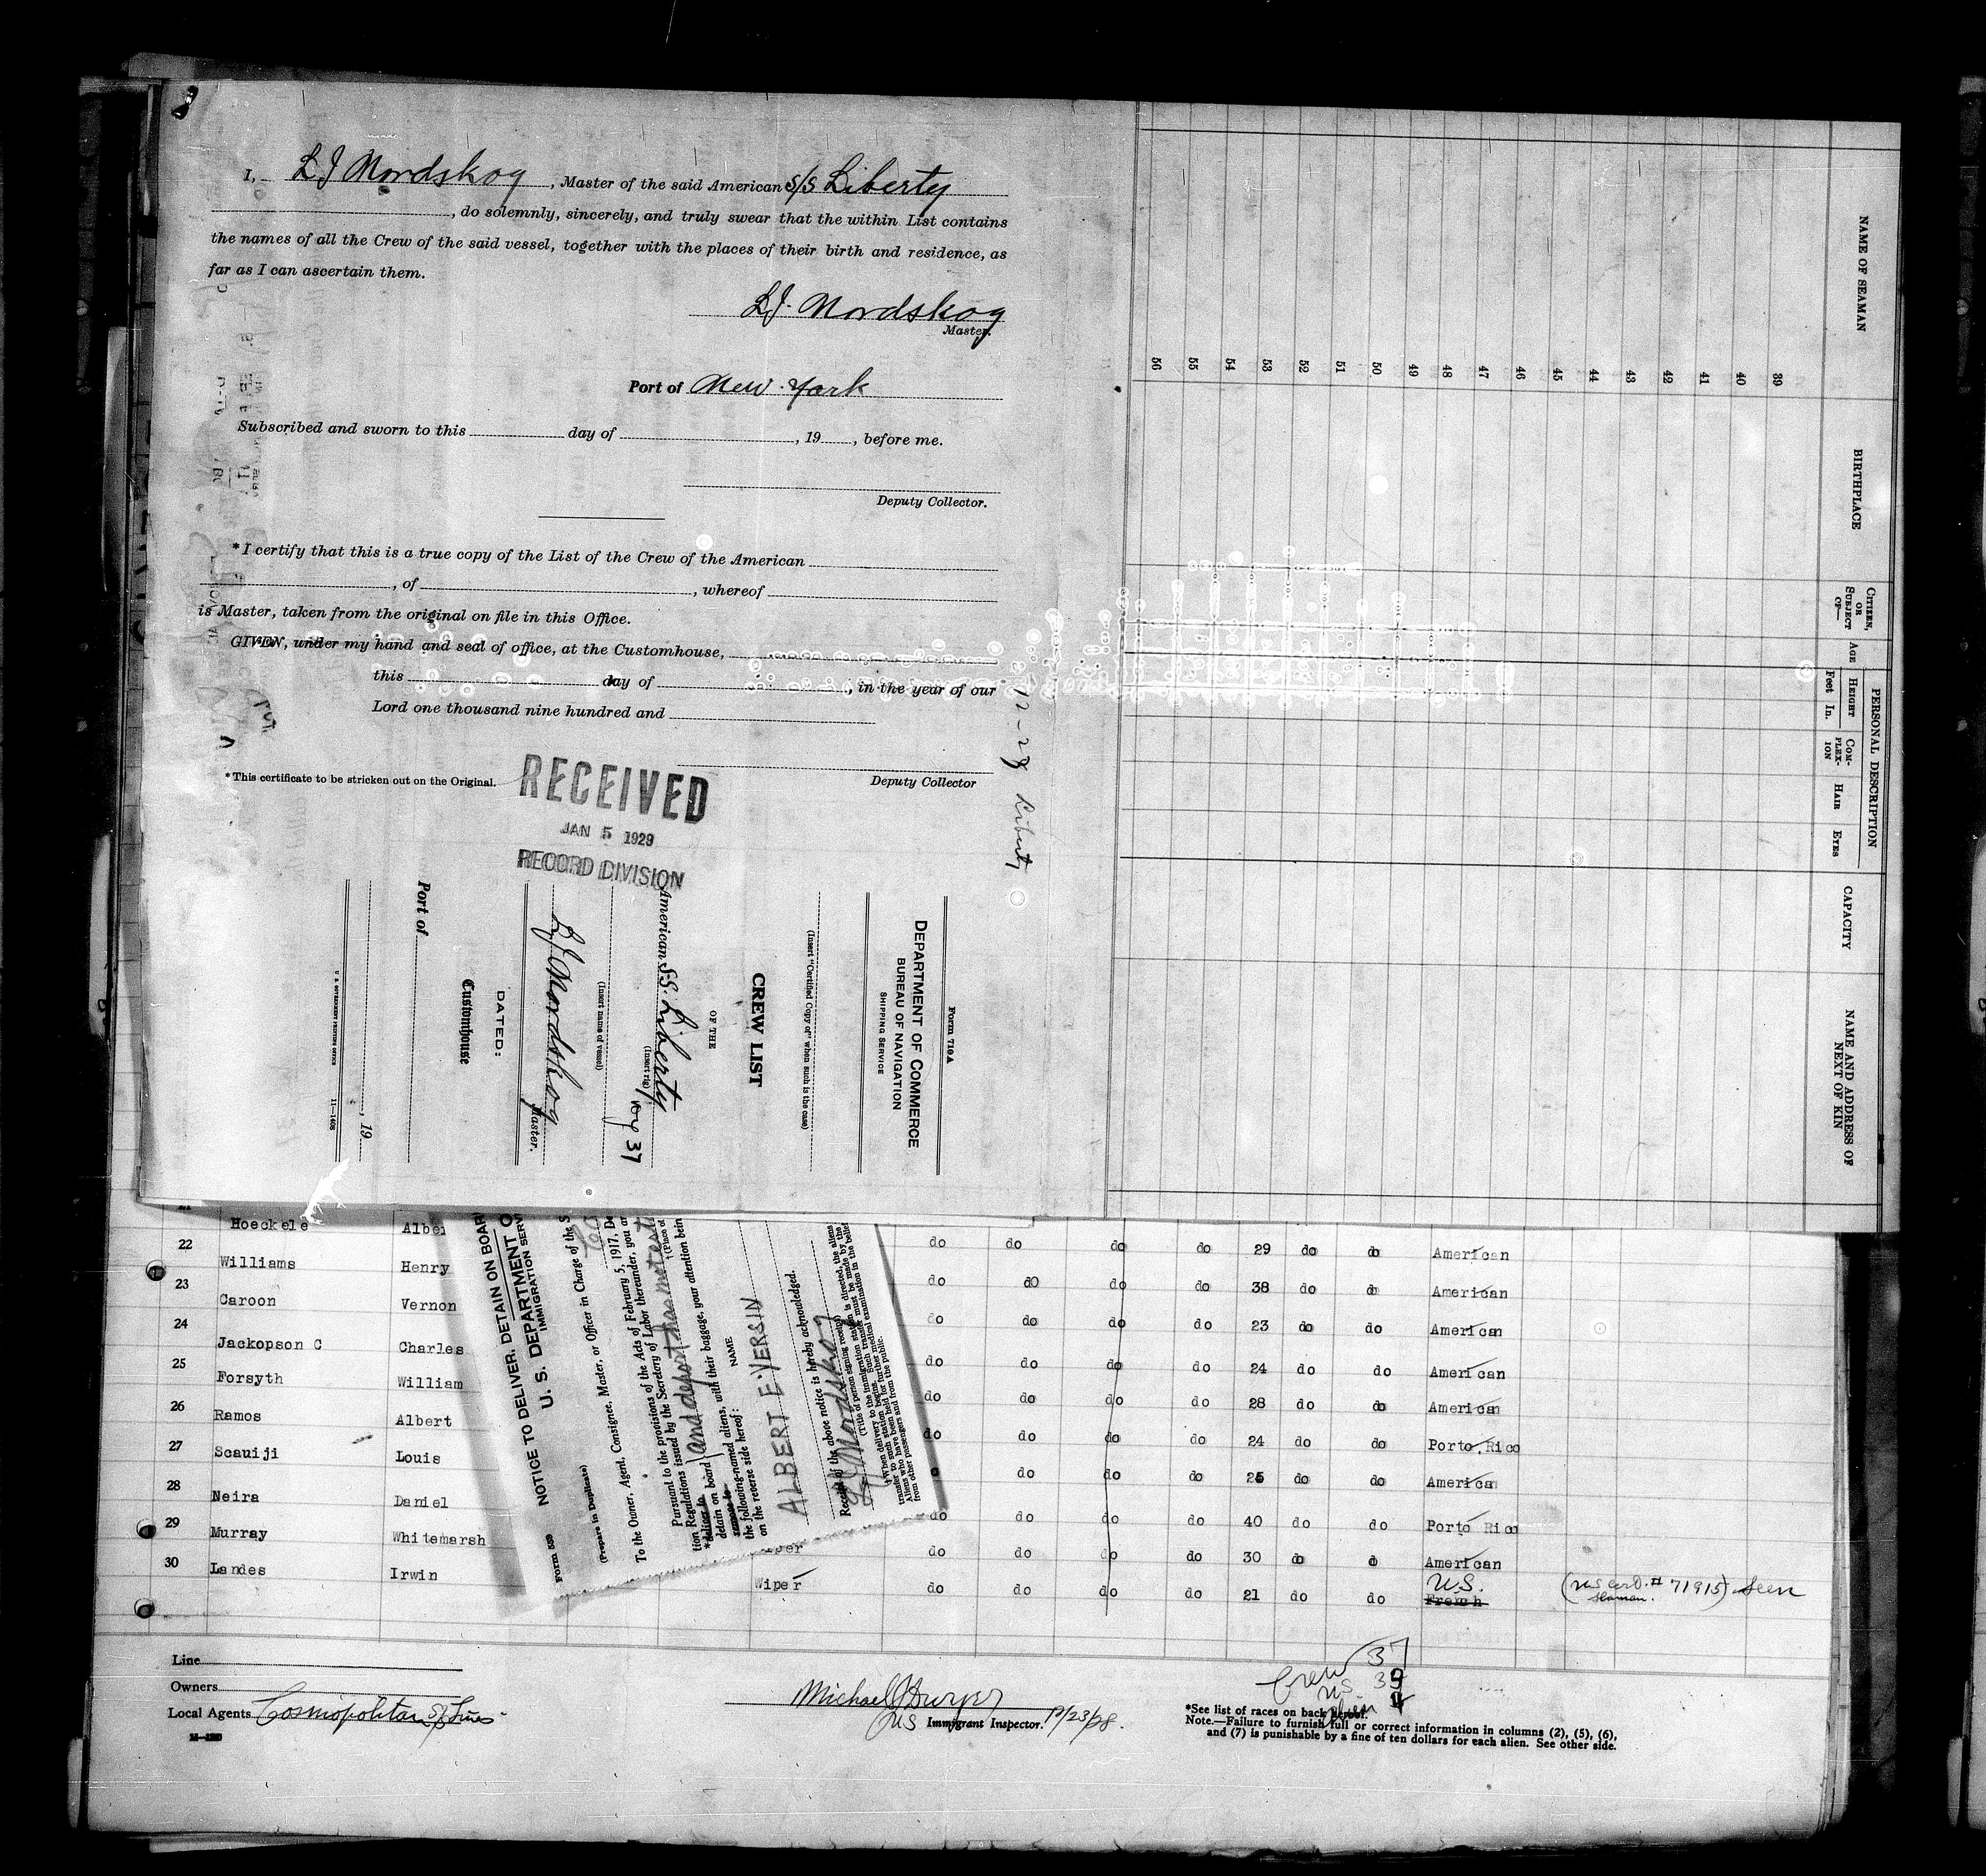 I, L J Nordskog, Master of the said American S/S Liberty
, do solemnly, sincerely, and truly swear that the within List contains
the names of all the Crew of the said vessel, together with the places of their birth and residence, as
far as I can ascertain them.
L J. Nordskog
Master.
Port of New York
Subscribed and sworn to this day of , 19 , before me.
Deputy Collector.
*I certify that this is a true copy of the List of the Crew of the American
, of , whereof
is Master, taken from the original on file in this Office.
GIVEN, under my hand and seal of office, at the Customhouse,
this day of , in the year of our
Lord one thousand nine hundred and
Deputy Collector
*This certificate to be stricken out on the Original.
RECEIVED
JAN 5 1929
RECORD DIVISION
Liberty
Form 710A
DEPARTMENT OF COMMERCE
BUREAU OF NAVIGATION
SHIPPING SERVICE
(Insert "Certified Copy of" when such is the case)
CREW LIST
OF THE
American S.S. Liberty
(Insert rig)
37
(Insert name of vessel)
L J Nordskog
Master.
DATED:
Customhouse
Port of
, 19
U. S. GOVERNMENT PRINTING OFFICE 11—1408
NAME OF SEAMAN
BIRTHPLACE
CITIZEN, OR SUBJECT OF—
AGE
PERSONAL DESCRIPTION
HEIGHT
Feet In.
COMPLEXION
HAIR
EYES
CAPACITY
NAME AND ADDRESS OF NEXT OF KIN
39
40
41
42
43
44
45
46
46
47
48
49
50
51
52
53
54
55
56
21 Hoeckele do do do do 29 do do American
22 Williams Henry do do do do 38 do do American
23 Caroon Vernon do do do do 23 do do American
24 Jackopson C Charles do do do do 24 do do American
25 Forsyth William do do do do 28 do do American
26 Ramos Albert do do do do 24 do do Porto Rico
27 Scauiji Louis do do do 25 do do American
28 Neira Daniel do do do do 40 do do Porto Rico
29 Murray Whitemarsh do do do do 30 do do American
30 Landes Irwin Wiper do do do do 21 do do U.S. French # 71915) Seen
seaman.
Form 539
NOTICE TO DELIVER, DETAIN ON BOARD
U. S. DEPARTMENT O
IMMIGRATION SERV
(Prepare in Duplicate)
To the Owner, Agent, Consignee, Master, or Officer in Charge of the S
Pursuant to the provisions of the Acts of February 5, 1917, De
tion Regulations issued by the Secretary of Labor thereunder, you ar
*deliver to
detain on board and deport
remove to
, with their baggage, your attention bein
the following-named aliens,
on the reverse side hereof:
NAME
ALBERT E. VERSIN
Receipt of the above notice is hereby acknowledged.
L J Nordskog
(Title of person signing receipt)
Line
Owners
Local Agents Cosmopolitan S/S Lines
Michael J Dwyer
US Immigrant Inspector. 12/23/28.
Crew 37
US 39
Alien
*See list of races on back hereof.
Note.—Failure to furnish full or correct information in columns (2), (5), (6),
and (7) is punishable by a fine of ten dollars for each alien. See other side.